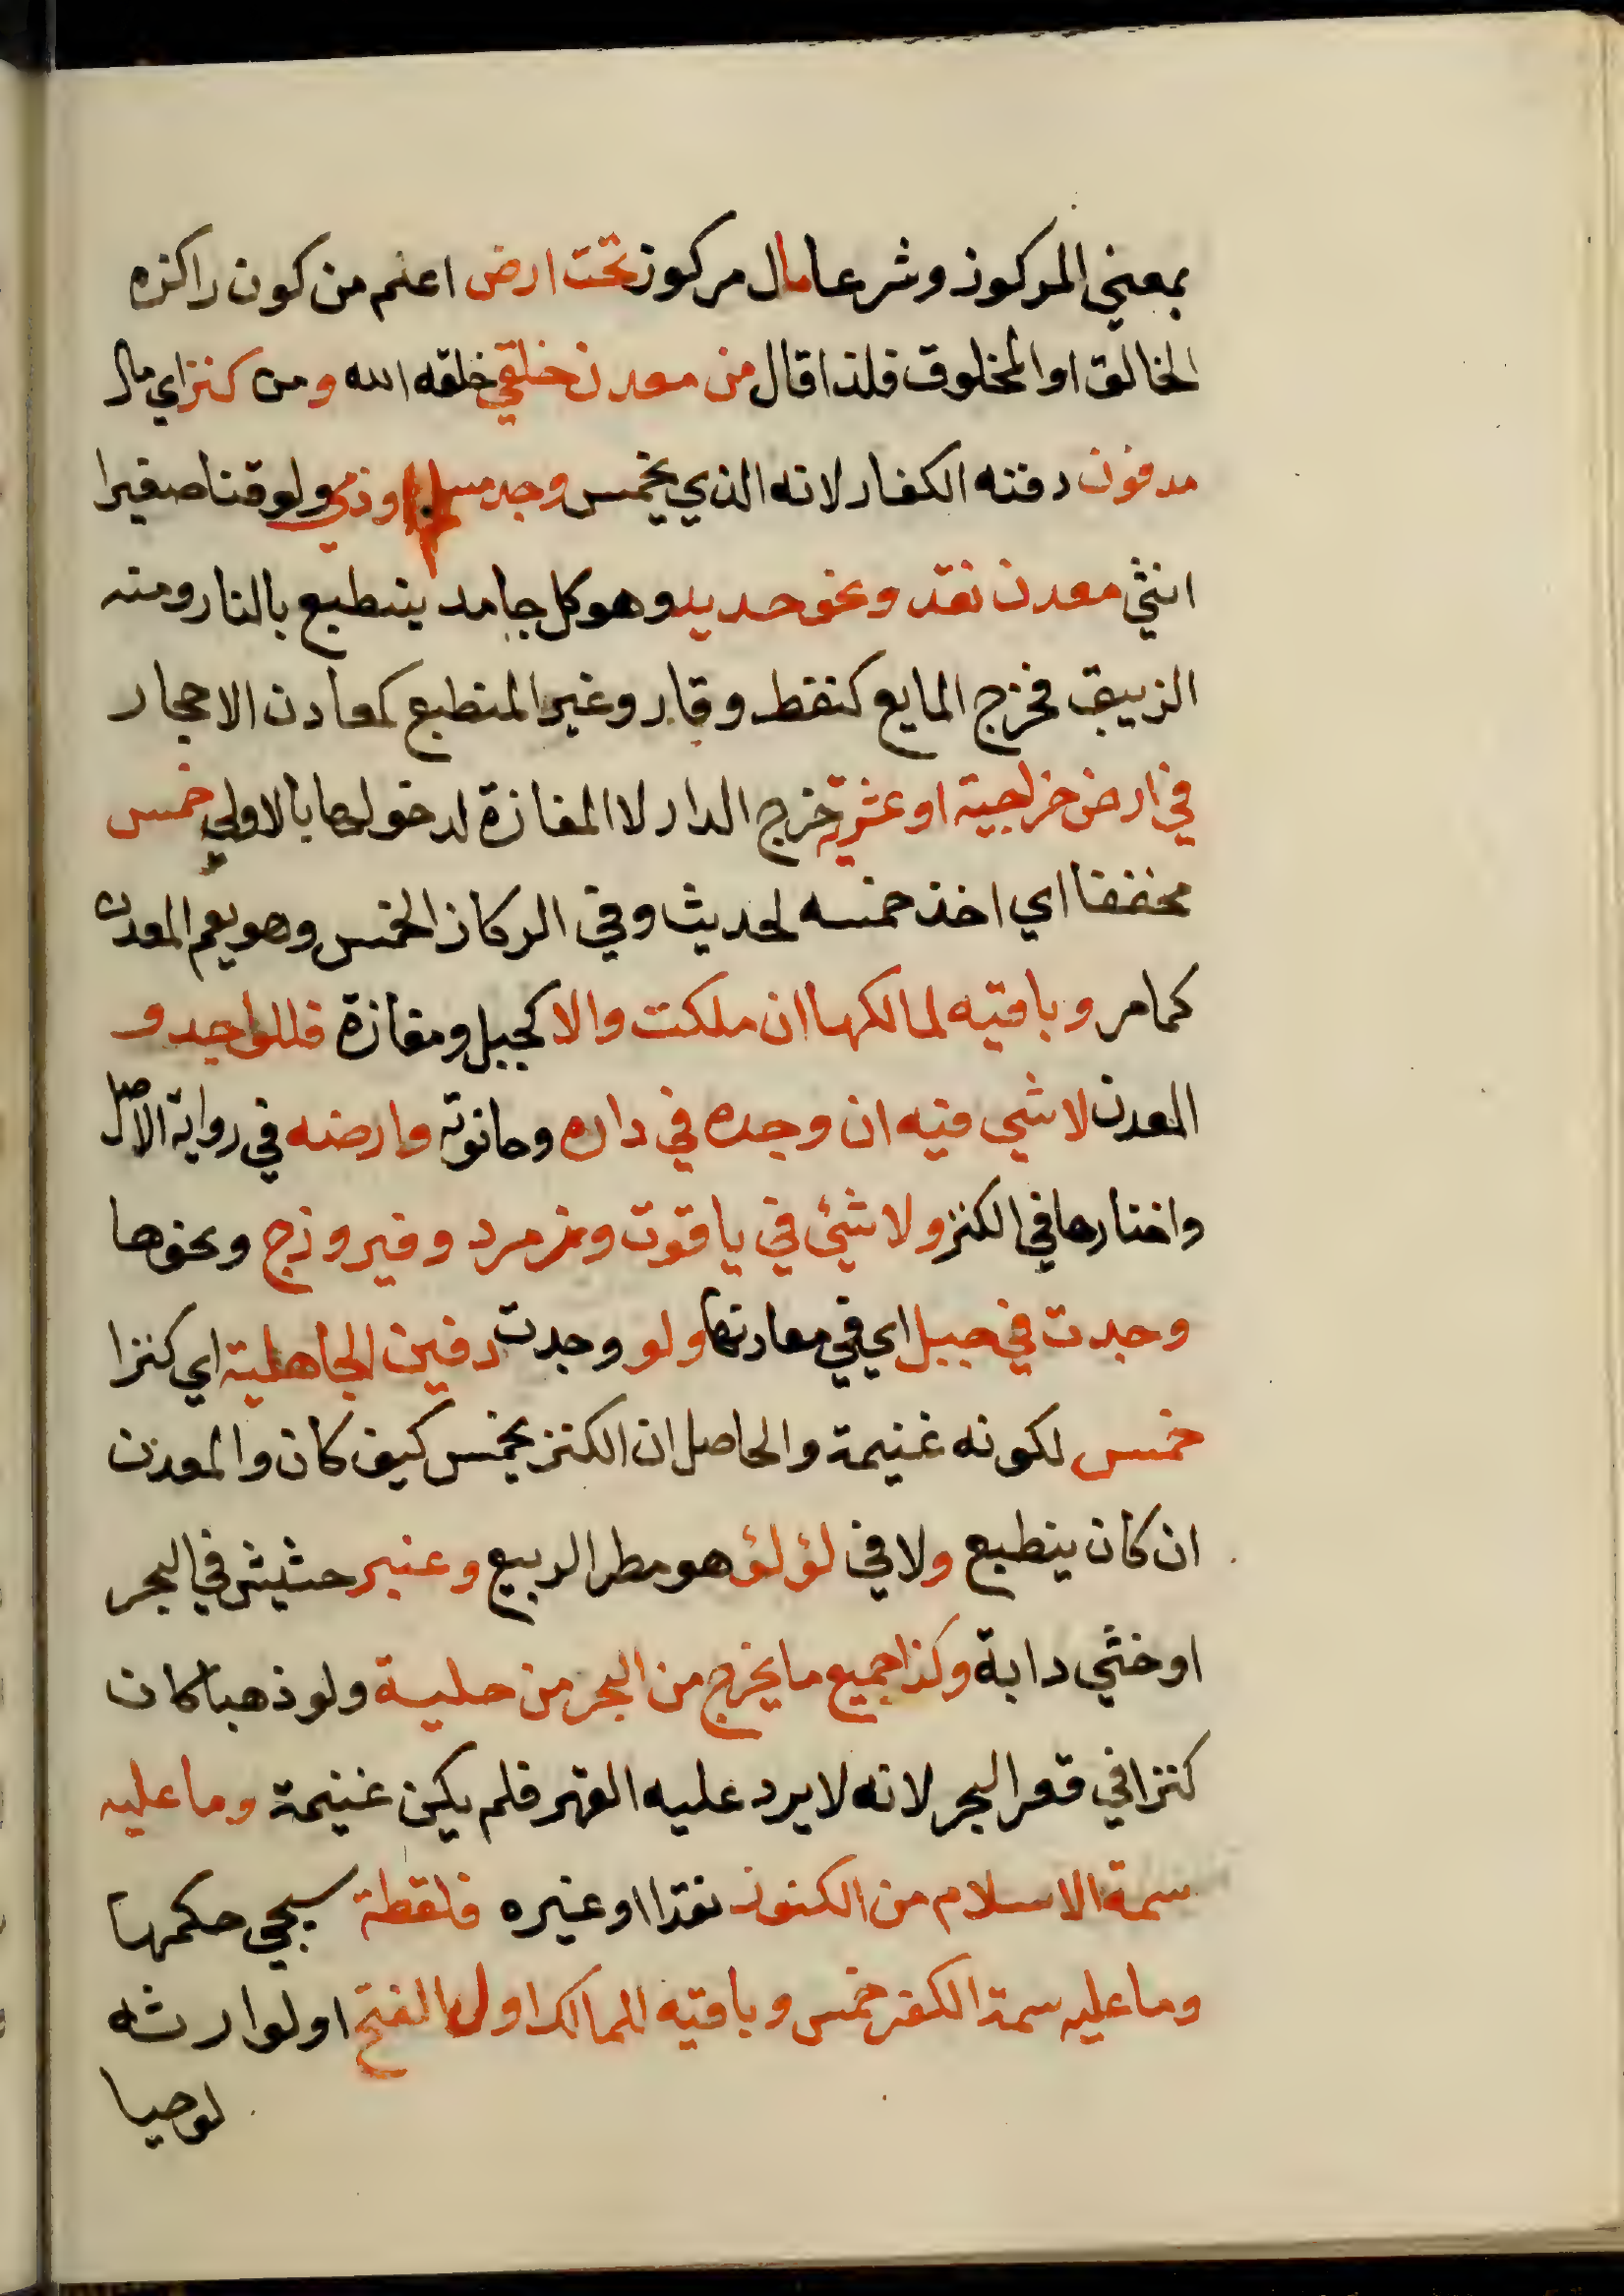 بمعني المركوز وشرعا مال مركوز تحت ارض اعم من كون راكزه
الخالق او المخلوق فلذا قال من معدن خلقي خلقه الله ومن كنز اي مال
مدفون دفنه الكفار لانه الذي يخمس وجد مسلم او ذمي ولو قنا صغيرا
انثي معدن نقد ونحو حديد وهو كل جامد ينطبع بالنار ومنه
الزيبق فخرج المايع كنفط وقار وغير المنطبع كمعادن الاحجار
في ارض خراجية او عشرية خرج الدار لا المفازة لدخولها بالاولي خمس
مخففا اي اخذ خمسه لحديث وفي الركاز الخمس وهو يعم المعدن
كما مر وباقيه لمالكها ان ملكت والا كجبل ومفازة فللواجد و
المعدن لا شي فيه ان وجده في داره وحانوته وارضه في رواية الاصل
واختارها في الكنز ولا شئ في ياقوت وزمرد وفيروزج ونحوها
وجدت في جبل اي في معادنها ولو وجدت دفين الجاهلية اي كنزا
خمس لكونه غنيمة والحاصل ان الكنز يخمس كيف كان والمعدن
ان كان ينطبع ولا في لؤلؤ هو مطر الربيع وعنبر حشيش في البحر
او خثي دابة وكذا جميع ما يخرج من البحر من حلية ولو ذهبا كان
كنزا في قعر البحر لانه لا يرد عليه القهر فلم يكن غنيمة وما عليه
سمة الاسلام من الكنوز نقدا او غيره فلقطة سيجي حكمها
وما عليه سمة الكفر خمس وباقيه للمالك اول الفتح او لوارثه
لو حيا